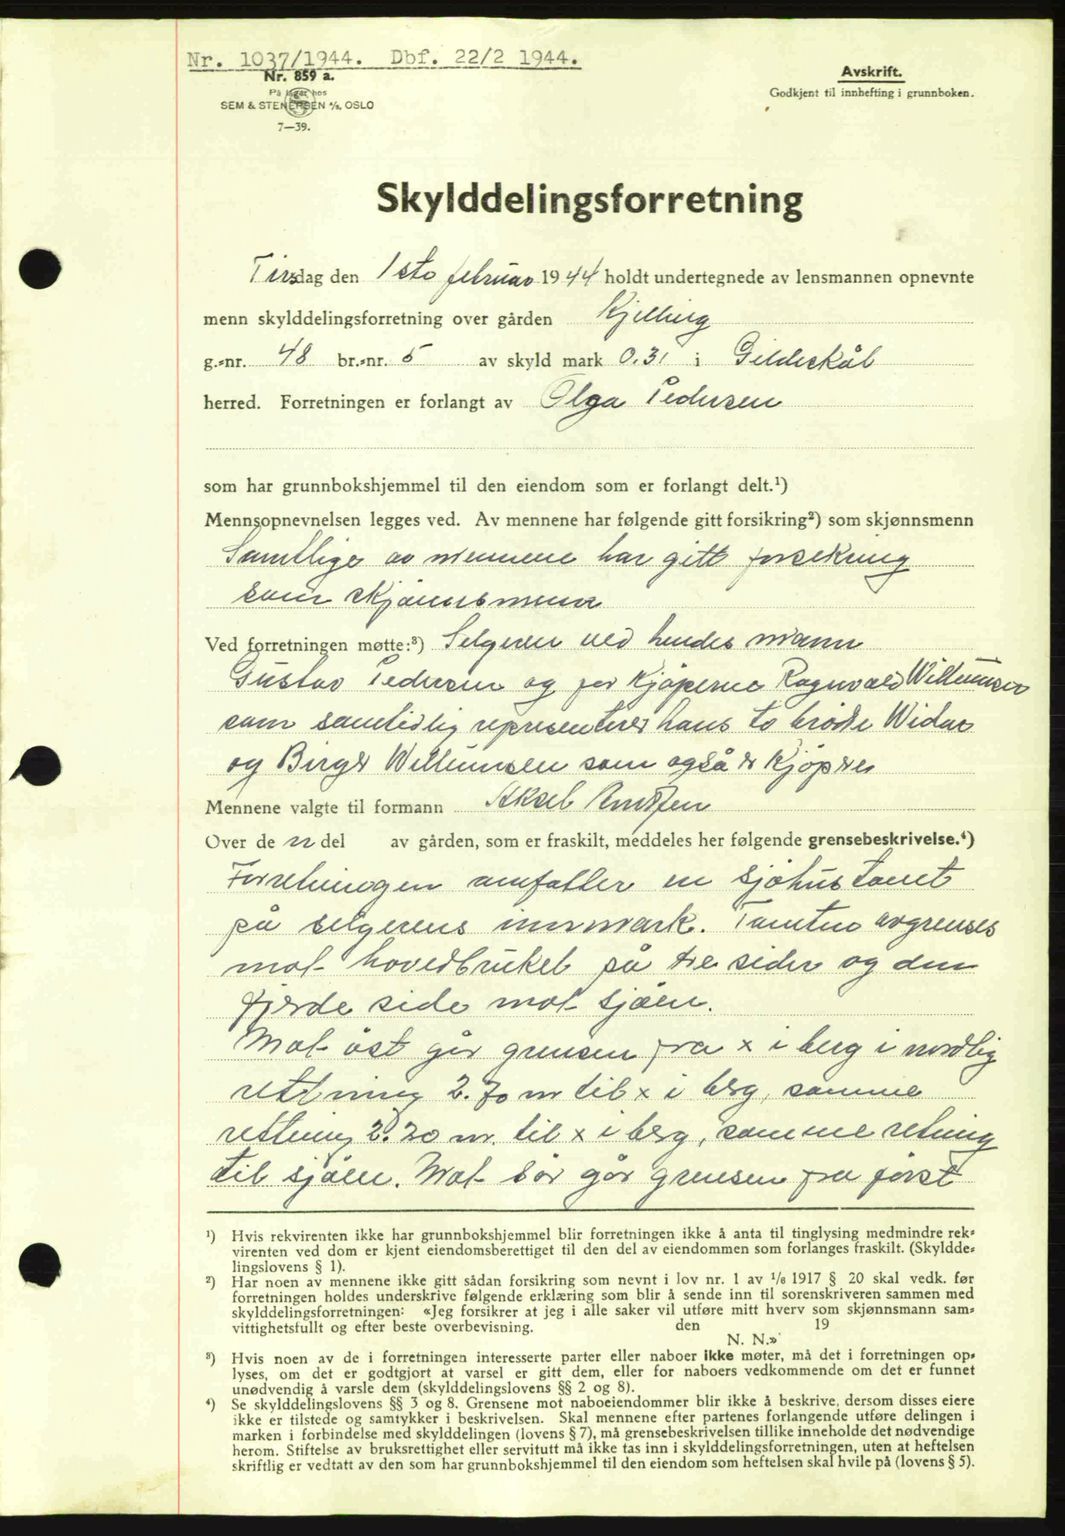 Nr. 1037/1944. Dbf. 22/2 1944.
Nr. 859 a.
På lager hos
SEM & STENERSEN A/S, OSLO
7—39.
Avskrift.
Godkjent til innhefting i grunnboken.
Skylddelingsforretning
Tirsdag den 1ste februar 1944 holdt undertegnede av lensmannen opnevnte
menn skylddelingsforretning over gården Kjelling
g.-nr. 48 br.-nr. 5 av skyld mark 0.31 i Gildeskål
herred. Forretningen er forlangt av Olga Pedersen
som har grunnbokshjemmel til den eiendom som er forlangt delt.¹)
Mennsopnevnelsen legges ved. Av mennene har følgende gitt forsikring²) som skjønnsmenn
Samtlige av mennene har gitt forsikring
som skjønnsmenn
Ved forretningen møtte:³) Selgeren ved hendes mann
Gustav Pedersen og for kjøperne Ragnvald Willumsen
som samtidig representerer hans to brødre Widar
og Birger Willumsen som også er kjøpere
Mennene valgte til formann Aksel
Over de n del av gården, som er fraskilt, meddeles her følgende grensebeskrivelse.⁴)
Forretningen omfatter en sjøhustomt
på selgerens innmark. Tomten avgrenses
mot hovedbruket på tre sider og den
fjerde side mot sjøen.
Mot øst går grensen fra x i berg i nordlig
rettning 2.70 m til x i berg, samme
rettning 2.20 m. til x i berg, samme retning
til sjøen. Mot sør går grensen fra først
¹) Hvis rekvirenten ikke har grunnbokshjemmel blir forretningen ikke å anta til tinglysing medmindre rek-
virenten ved dom er kjent eiendomsberettiget til den del av eiendommen som forlanges fraskilt. (Skyldde-
lingslovens § 1).
²) Har noen av mennene ikke gitt sådan forsikring som nevnt i lov nr. 1 av 1/6 1917 § 20 skal vedk. før
forretningen holdes underskrive følgende erklæring som blir å sende inn til sorenskriveren sammen med
skylddelingsforretningen: «Jeg forsikrer at jeg i alle saker vil utføre mitt hverv som skjønnsmann sam-
vittighetsfullt og efter beste overbevisning. den 19
N. N.»
³) Hvis noen av de i forretningen interesserte parter eller naboer ikke møter, må det i forretningen op-
lyses, om det er godtgjort at varsel er gitt dem, eller for naboers vedkommende om det er funnet
unødvendig å varsle dem (skylddelingslovens §§ 2 og 8).
⁴) Se skylddelingslovens §§ 3 og 8. Grensene mot naboeiendommer blir ikke å beskrive, dersom disses eiere
ikke er tilstede og samtykker i beskrivelsen. Skal mennene efter partenes forlangende utføre delingen i
marken i forbindelse med skylddelingen (lovens § 7), må grensebeskrivelsen tillike inneholde det nødvendige
herom. Stiftelse av bruksrettighet eller servitutt må ikke tas inn i skylddelingsforretningen, uten at heftelsen
skriftlig er vedtatt av den som har grunnbokshjemmel til den eiendom som heftelsen skal hvile på (lovens § 5).